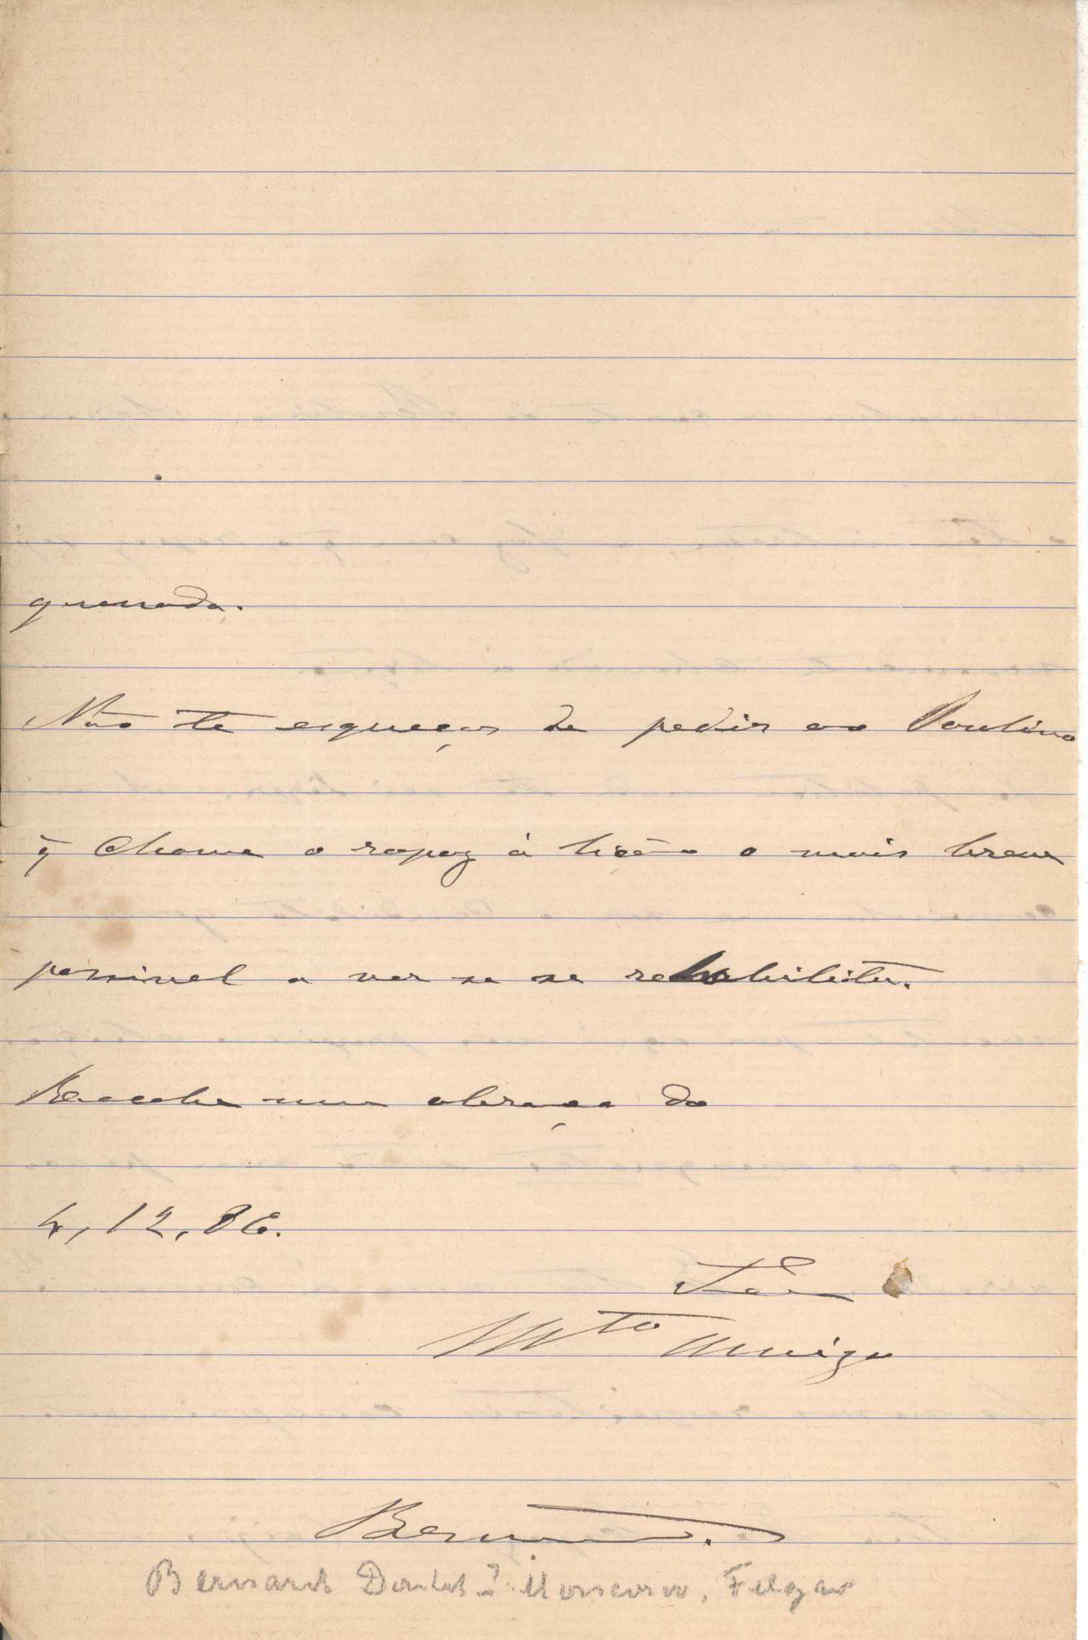 Não te esqueças de pedir ao Paulino
q̃ chame o rapaz á lição o mais breve
possivel a ver se se rehabilita.
Recebe um abraço do
4,12,86.
Teu
Mto Amigo
Bernardo